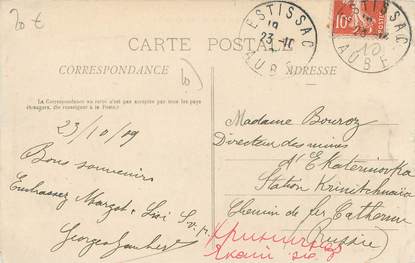 20 €
ESTISSAC
19
23-10
AUBE
ESTISSAC
23-10
AUBE
10
CARTE POSTALE
CORRESPONDANCE
ADRESSE
La Correspondance au recto n'est pas acceptée par tous les pays
étrangers. (Se renseigner à la Poste.)
23/10/09
Bons souvenirs
Embrassez Margot & Lili S.v.p.
Georges
Madame Bouroz
Directeur des mines
d'Ekaterinovka
Station Krinitchnaïa
Chemin de fer Catherine
(Russie)